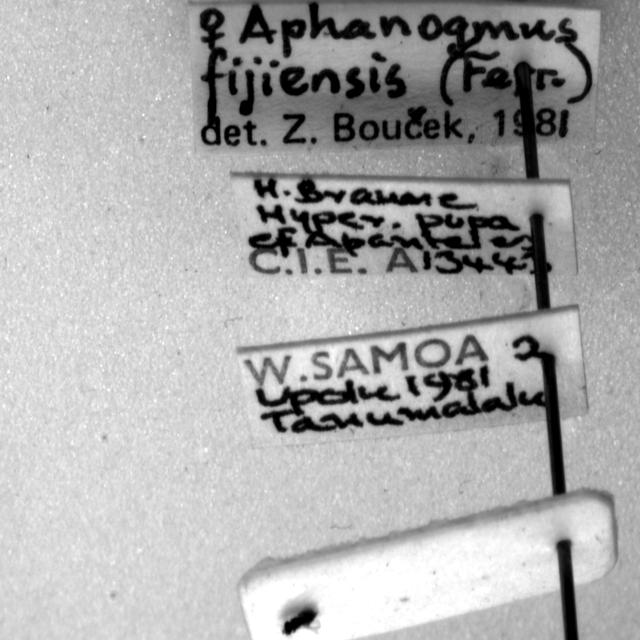 ♀ Aphanogmus
fijiensis (Ferr.)
det. Z. Bouček, 1981
H. Braune
Hyper. pupa
of Apanteles
C.I.E. A13443
W. SAMOA 2
Upolu 1981
Tanumalala